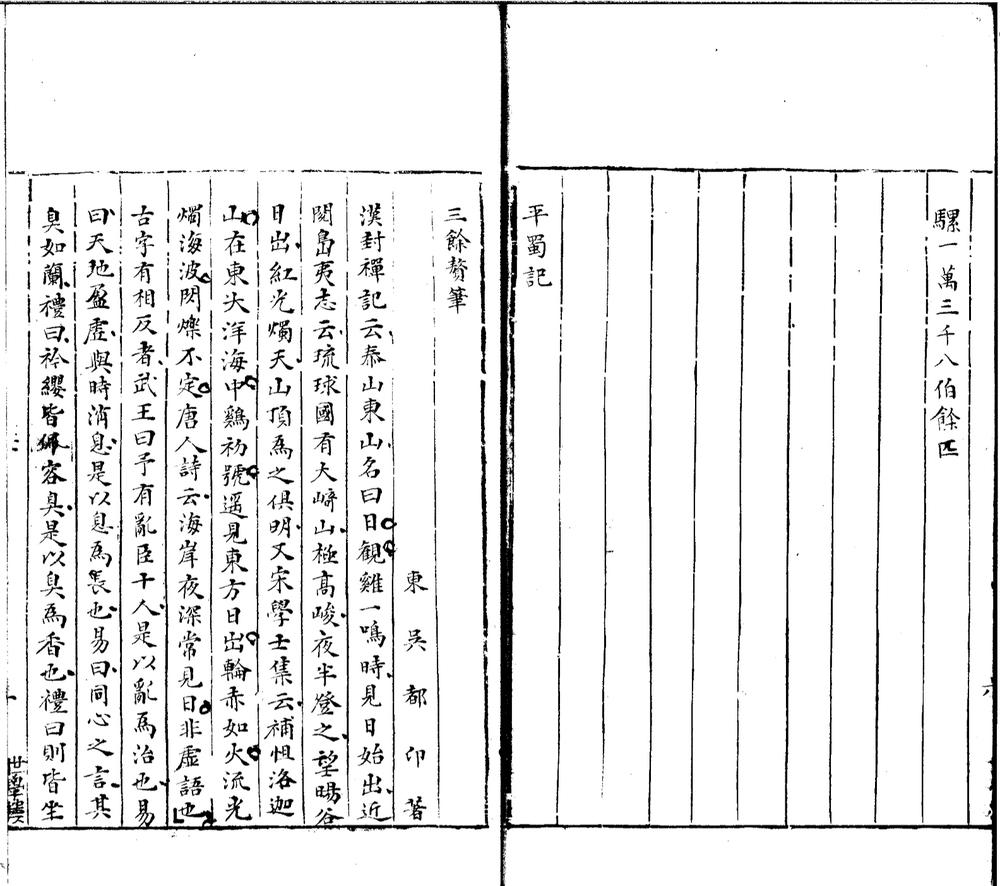 騾一萬三千八伯餘匹
平蜀記
三餘贅筆
東吳都卬著
漢封禪記云泰山東山名曰日觀雞一鳴時見日始出近
閱島夷志云琉球國有大﨑山極高峻夜半登之望暘谷
日出紅光燭天山頂為之俱明又宋學士集云補怛洛迦
山在東大洋海中鷄初號遥見東方日出輪赤如火流光
燭海波閃爍不定唐人詩云海岸夜深常見日非虛語也
古字有相反者武王曰予有亂臣十人是以亂為治也易
曰天地盈虛與時消息是以息為長也易曰同心之言其
臭如蘭禮曰衿纓皆佩容臭是以臭為香也禮曰則皆坐
世學樓